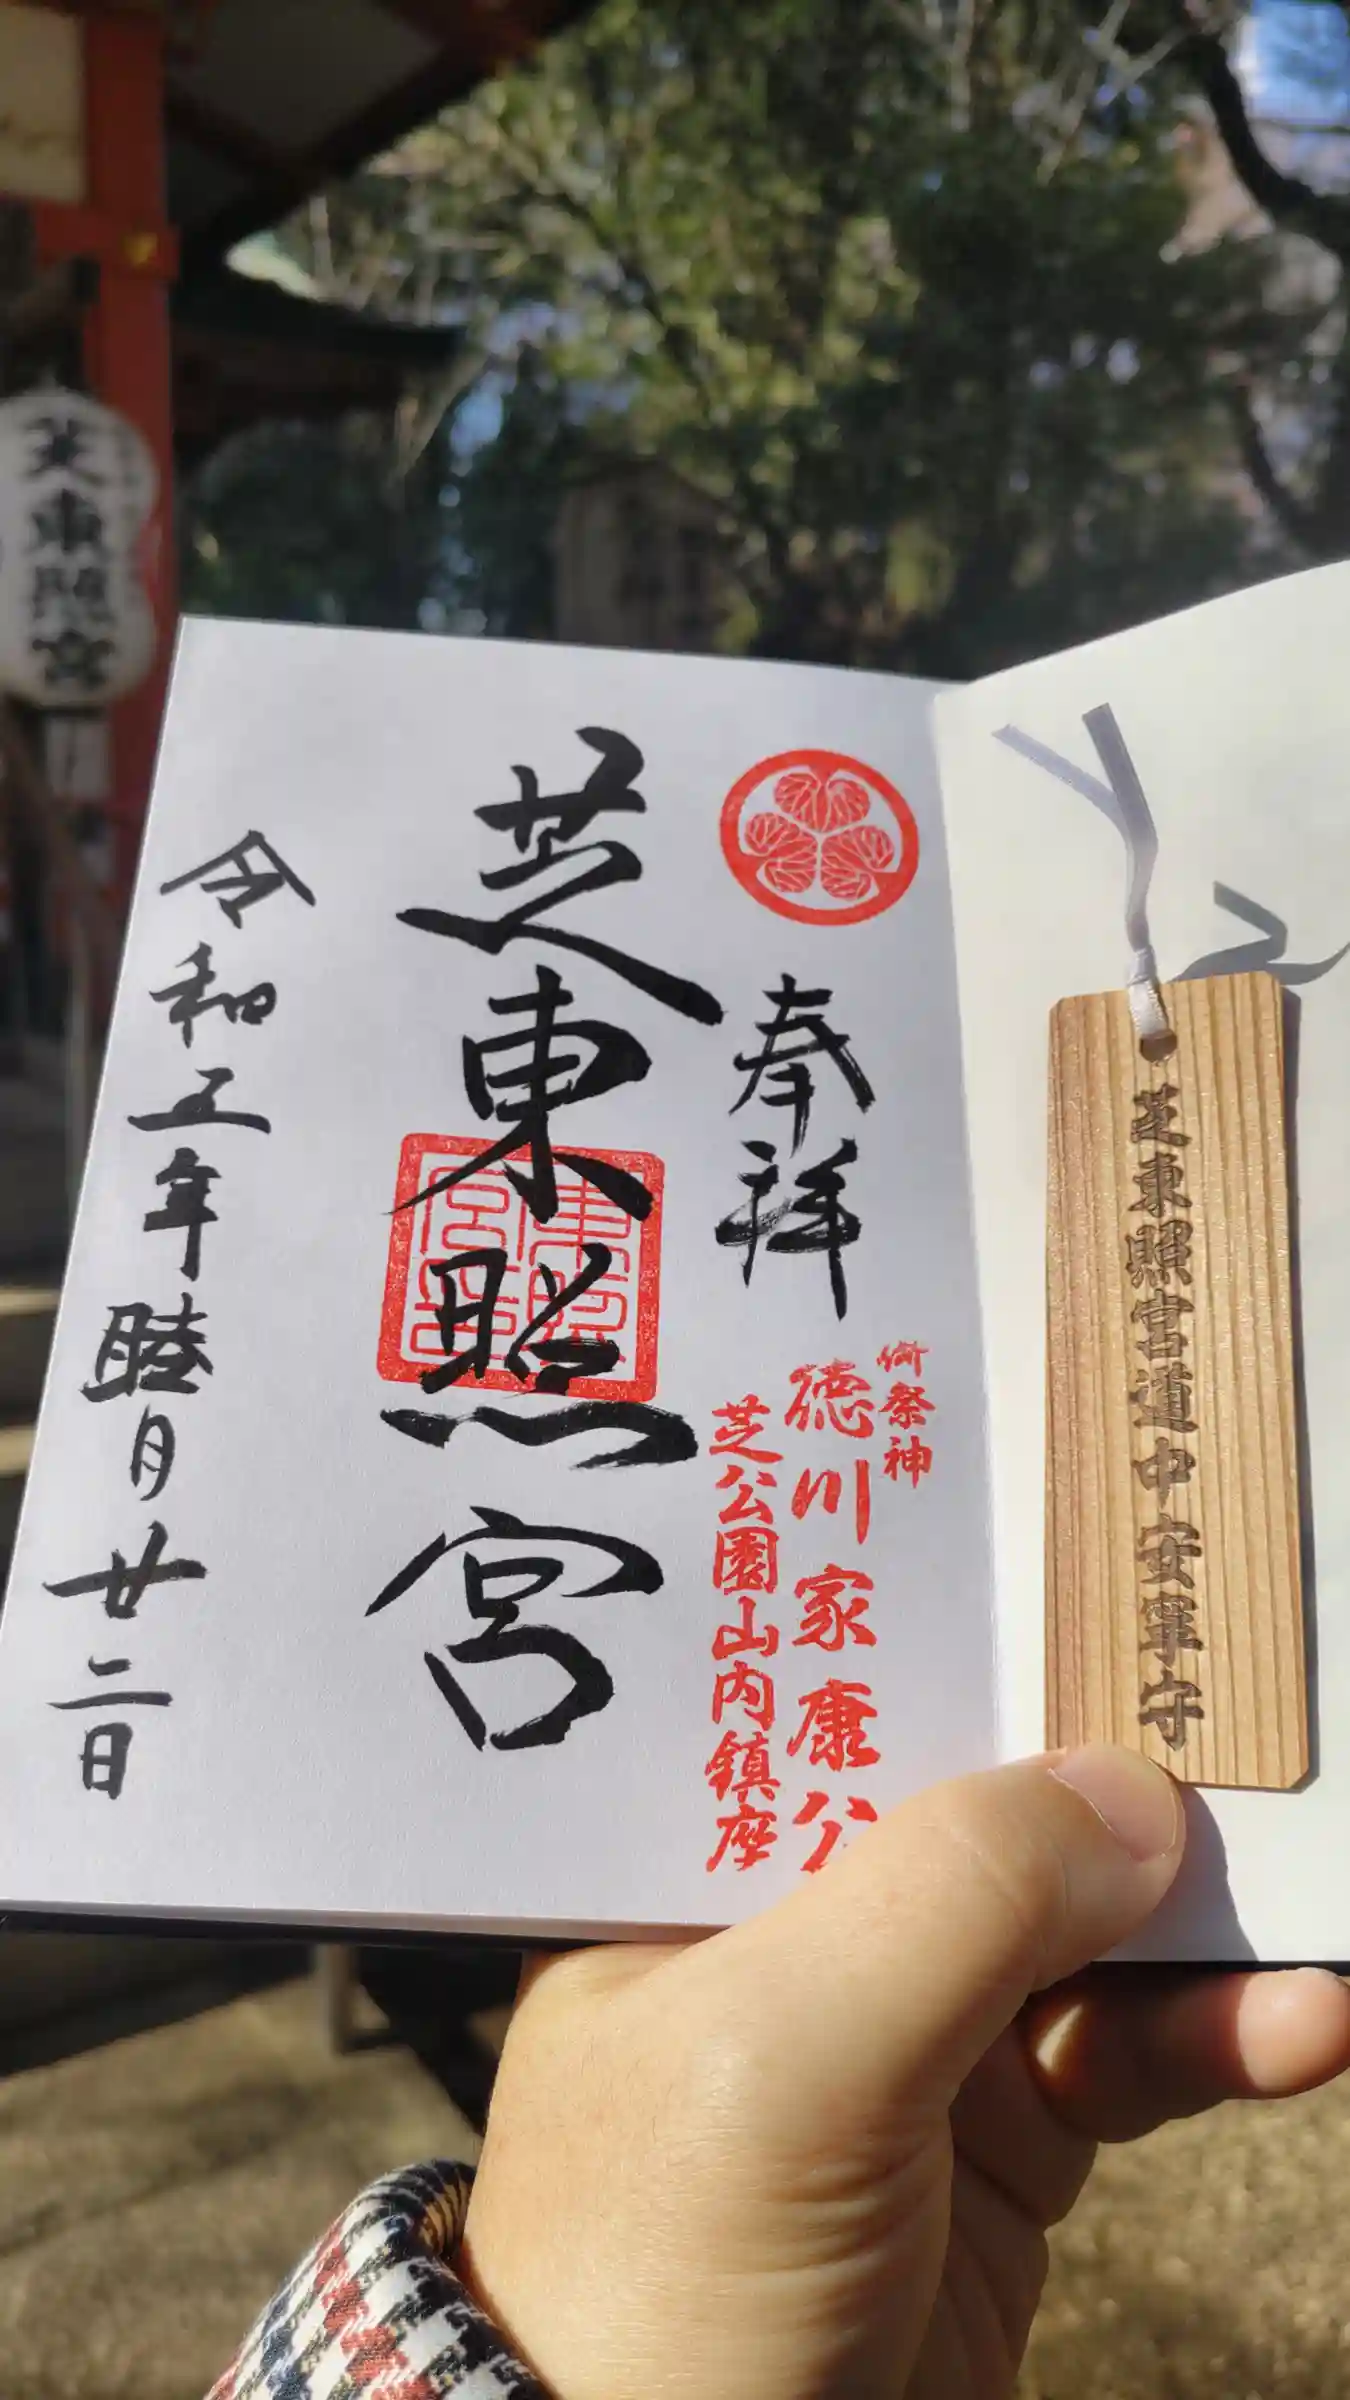 奉拝
御祭神
徳川家康公
芝公園山内鎮座
芝東照宮
令和五年睦月廿二日
芝東照宮道中安寧守
芝東照宮